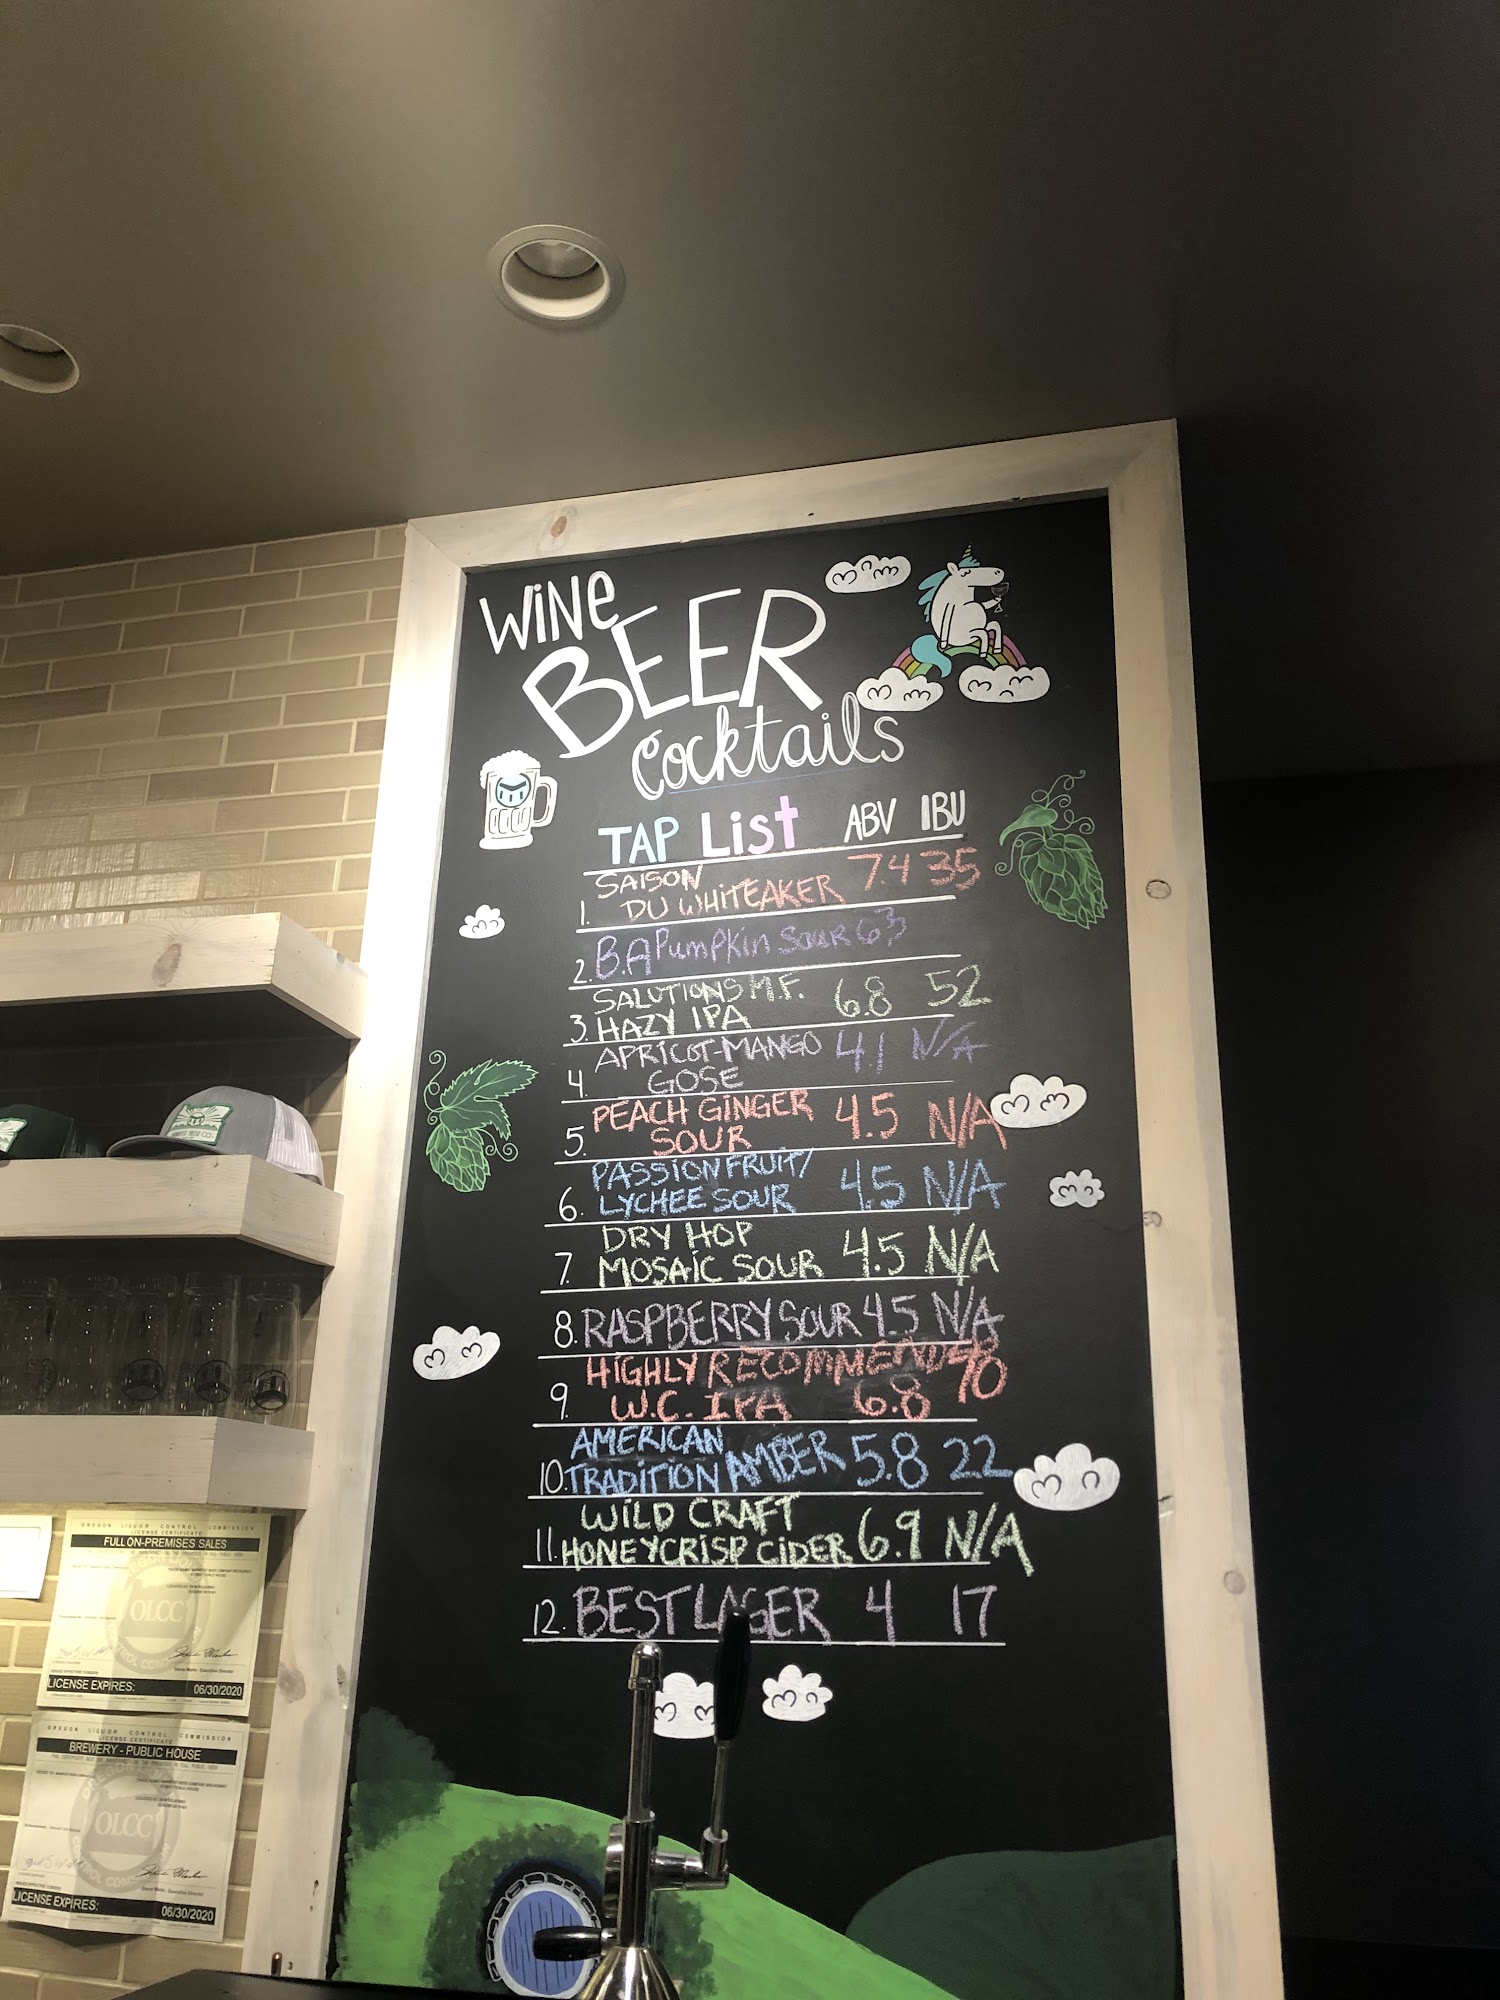 WiNe
BEER
Cocktails
TAP List ABV IBU
SAISON
1. DU WHITEAKER 7.4 35
2. B.A Pumpkin Sour
SALUTIONS M.F.
3. HAZY IPA 6.8 52
APRICOT-MANGO
4. GOSE 4.1 N/A
PEACH GINGER
5. SOUR 4.5 N/A
PASSIONFRUIT/
6. LYCHEE SOUR 4.5 N/A
DRY HOP
7. MOSAIC SOUR 4.5 N/A
8. RASPBERRY SOUR 4.5 N/A
HIGHLY RECOMMENDED
9. W.C. IPA 6.8 70
AMERICAN
10. TRADITION AMBER 5.8 22
WILD CRAFT
11. HONEYCRISP CIDER 6.9 N/A
12. BEST LAGER 4 17
OREGON LIQUOR CONTROL COMMISSION
LICENSE CERTIFICATE
FULL ON-PREMISES SALES
OLCC
LICENSE EXPIRES: 06/30/2020
OREGON LIQUOR CONTROL COMMISSION
LICENSE CERTIFICATE
BREWERY - PUBLIC HOUSE
OLCC
LICENSE EXPIRES: 06/30/2020